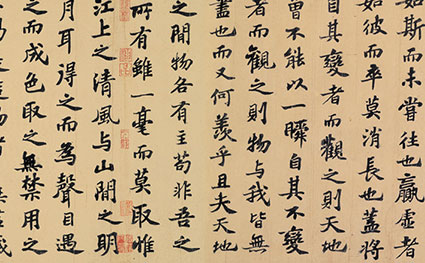 如斯而未嘗往也贏虛者
如彼而卒莫消長也蓋將
自其變者而觀之則天地
曾不能以一瞬自其不變
者而觀之則物與我皆無
盡也而又何羨乎且夫天地
之間物各有主苟非吾之
所有雖一毫而莫取惟
江上之清風與山間之明
月耳得之而為聲目遇
之而成色取之無禁用之